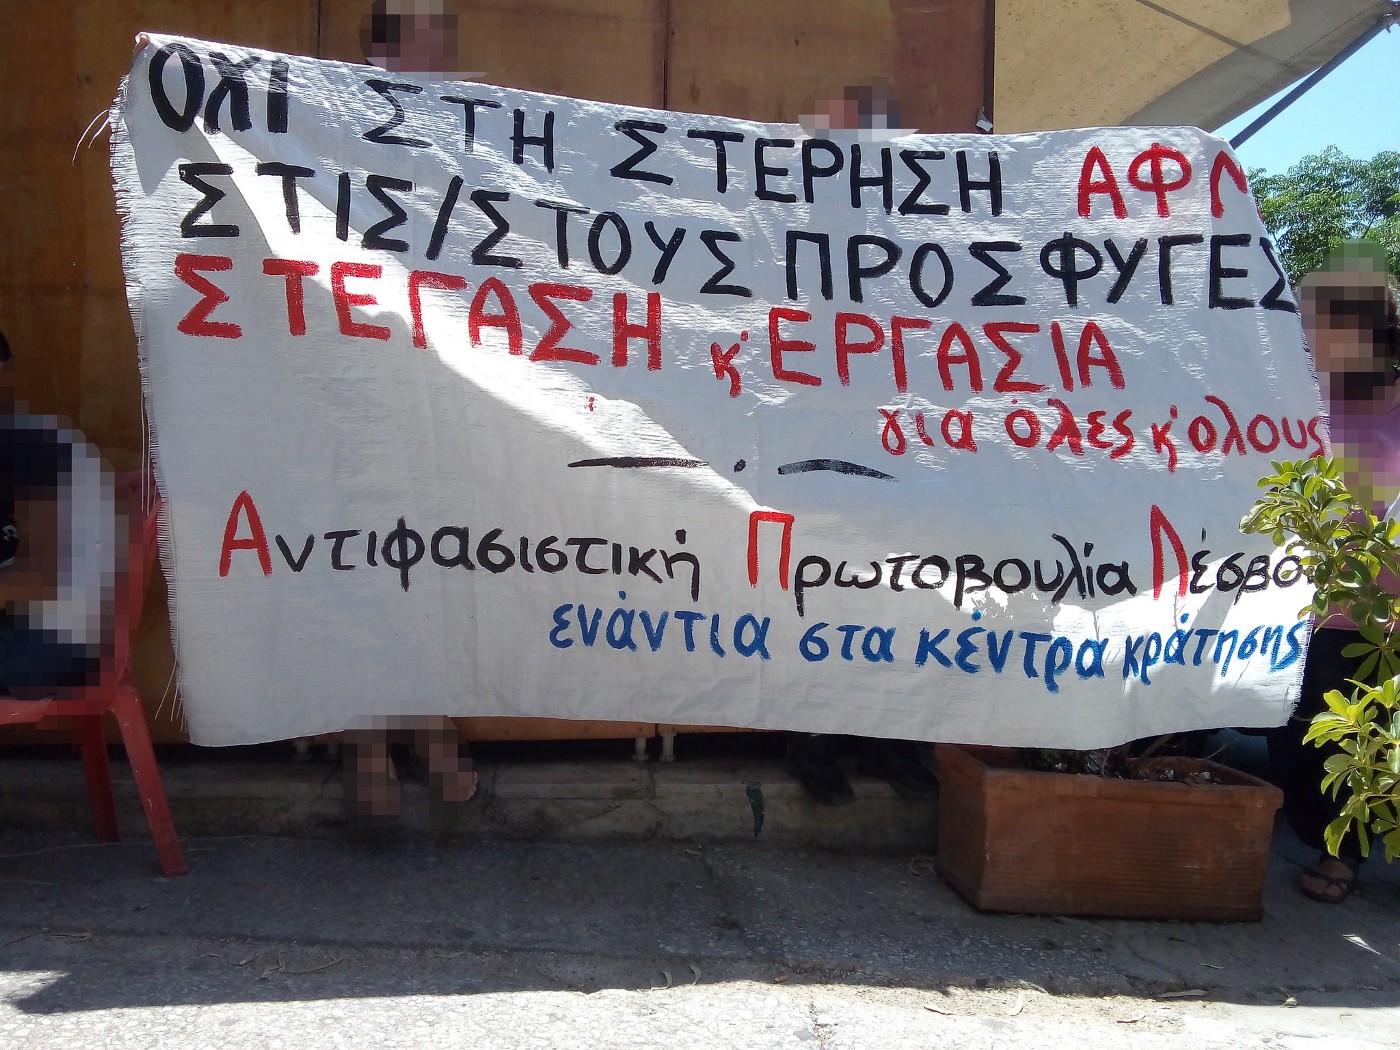 ΟΧΙ ΣΤΗ ΣΤΕΡΗΣΗ ΑΦΜ
ΣΤΙΣ/ΣΤΟΥΣ ΠΡΟΣΦΥΓΕΣ
ΣΤΕΓΑΣΗ κ' ΕΡΓΑΣΙΑ
για όλες κ' όλους
Αντιφασιστική Πρωτοβουλία Λέσβου
ενάντια στα κέντρα κράτησης